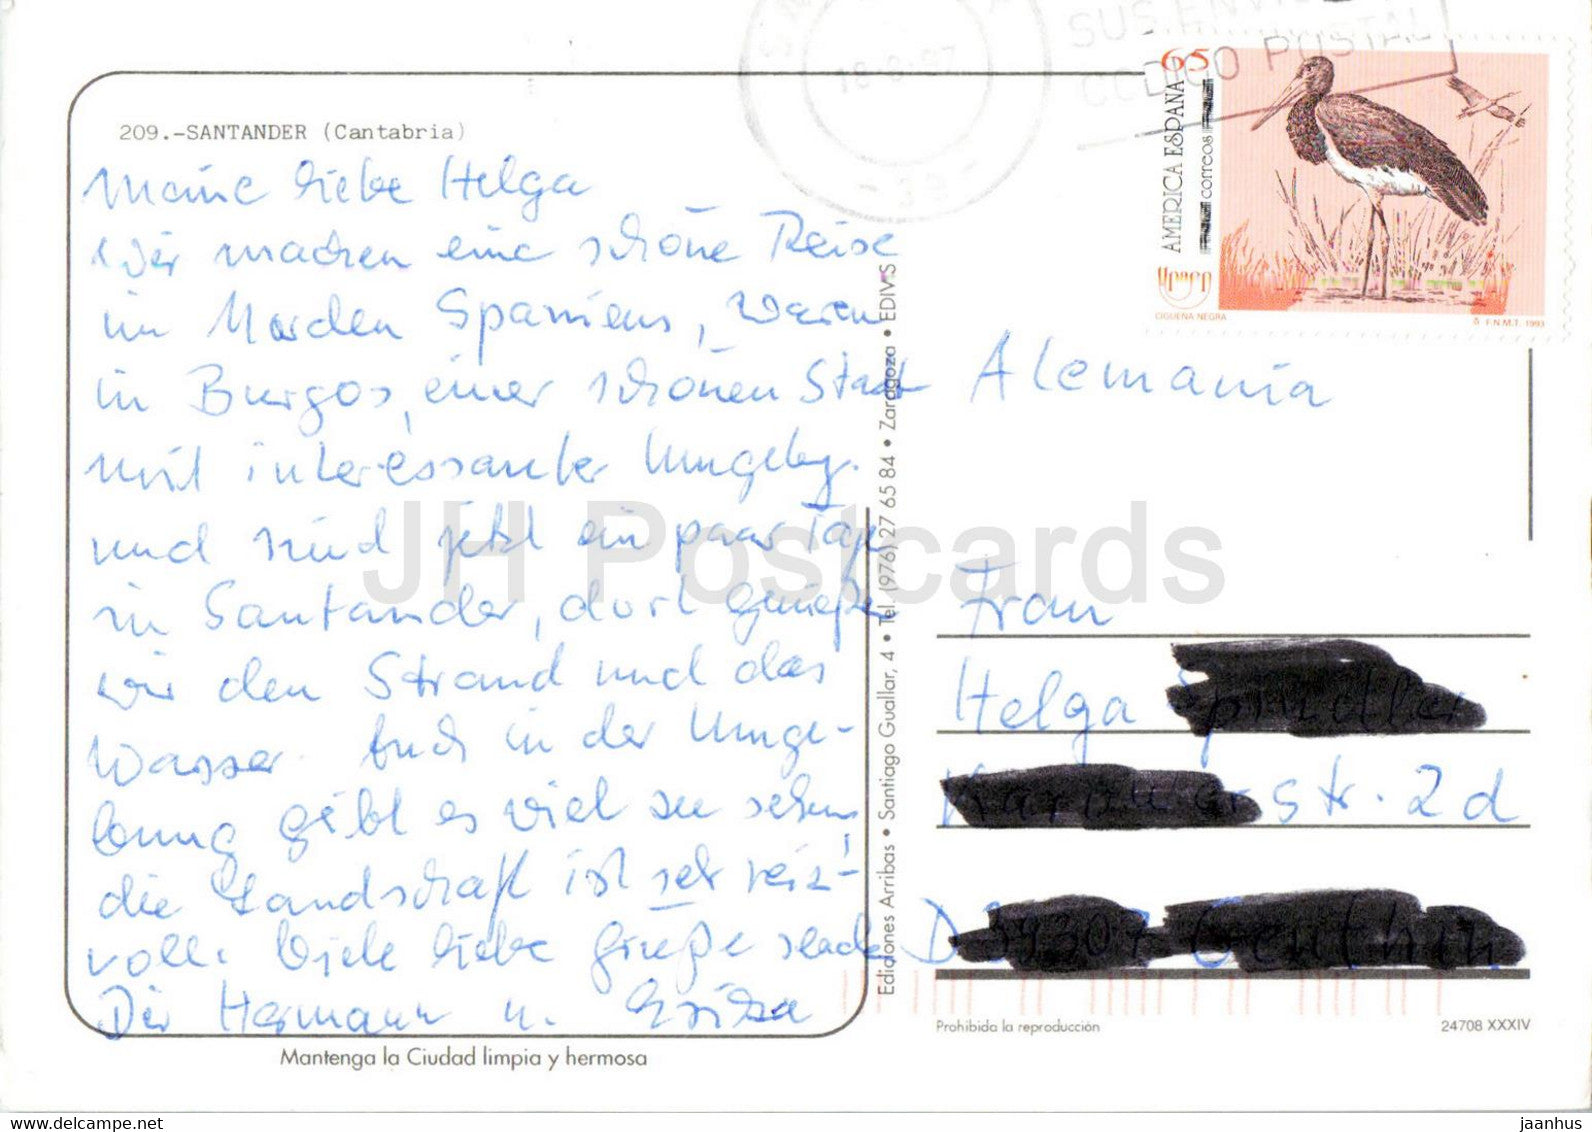 SUS ENVI
CODIGO POSTAL
18-8-97
-39-
65
AMERICA ESPAÑA
correos
UPAEP
CIGÜEÑA NEGRA
F.N.M.T. 1993
209.-SANTANDER (Cantabria)
Meine liebe Helga
Wir machen eine schöne Reise
im Norden Spaniens, waren
in Burgos, einer schönen Stadt
mit interessanter Umgebg.
und sind jetzt ein paar Tage
in Santander, dort genießen
wir den Strand und das
Wasser. Auch in der Umge-
bung gibt es viel zu sehen,
die Landschaft ist sehr reiz-
voll. Viele liebe Grüße senden
Dir Hermann u. Erika
Mantenga la Ciudad limpia y hermosa
Ediciones Arribas • Santiago Guallar, 4 • Tel. (976) 27 65 84 • Zaragoza • EDIVIS
Alemania
Frau
Helga
str. 2d
D
Prohibida la reproducción
24708 XXXIV
JH Postcards
www.delcampe.net
jaanhus